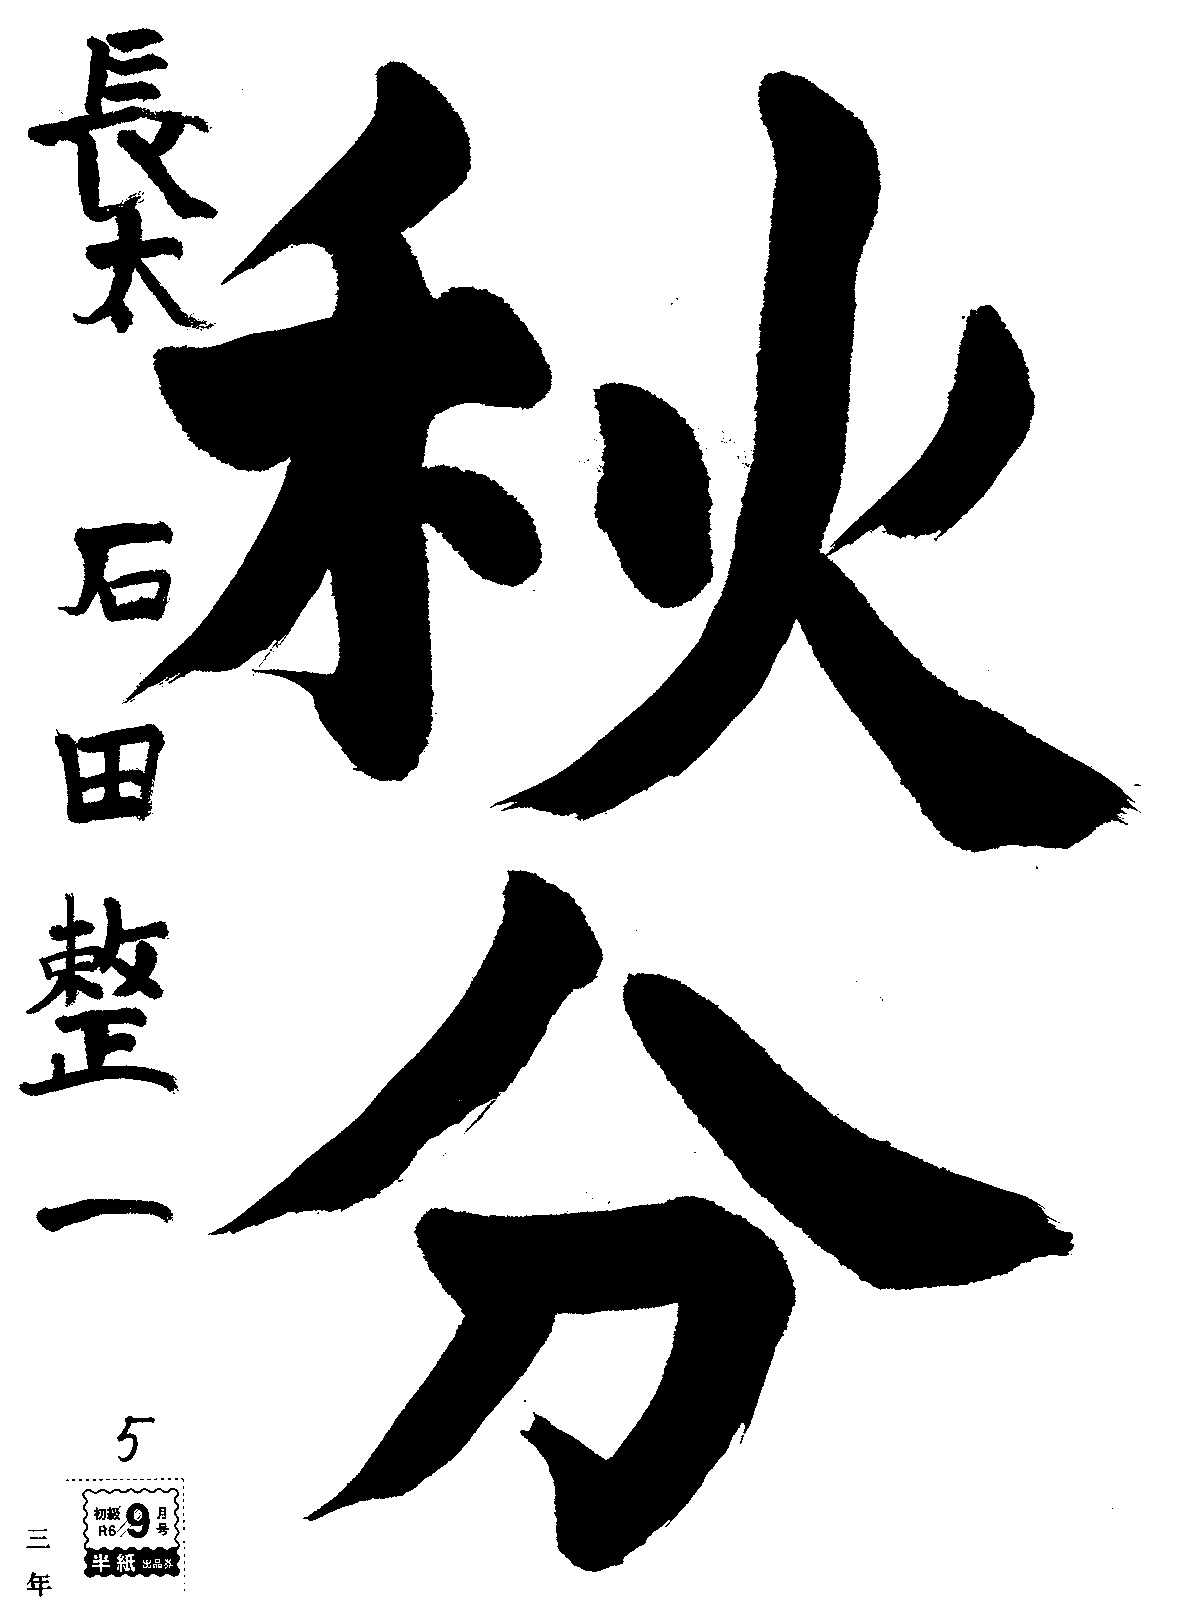 秋分
長太 石田整一
5
初級 R6/9月号
半紙 出品券
三年